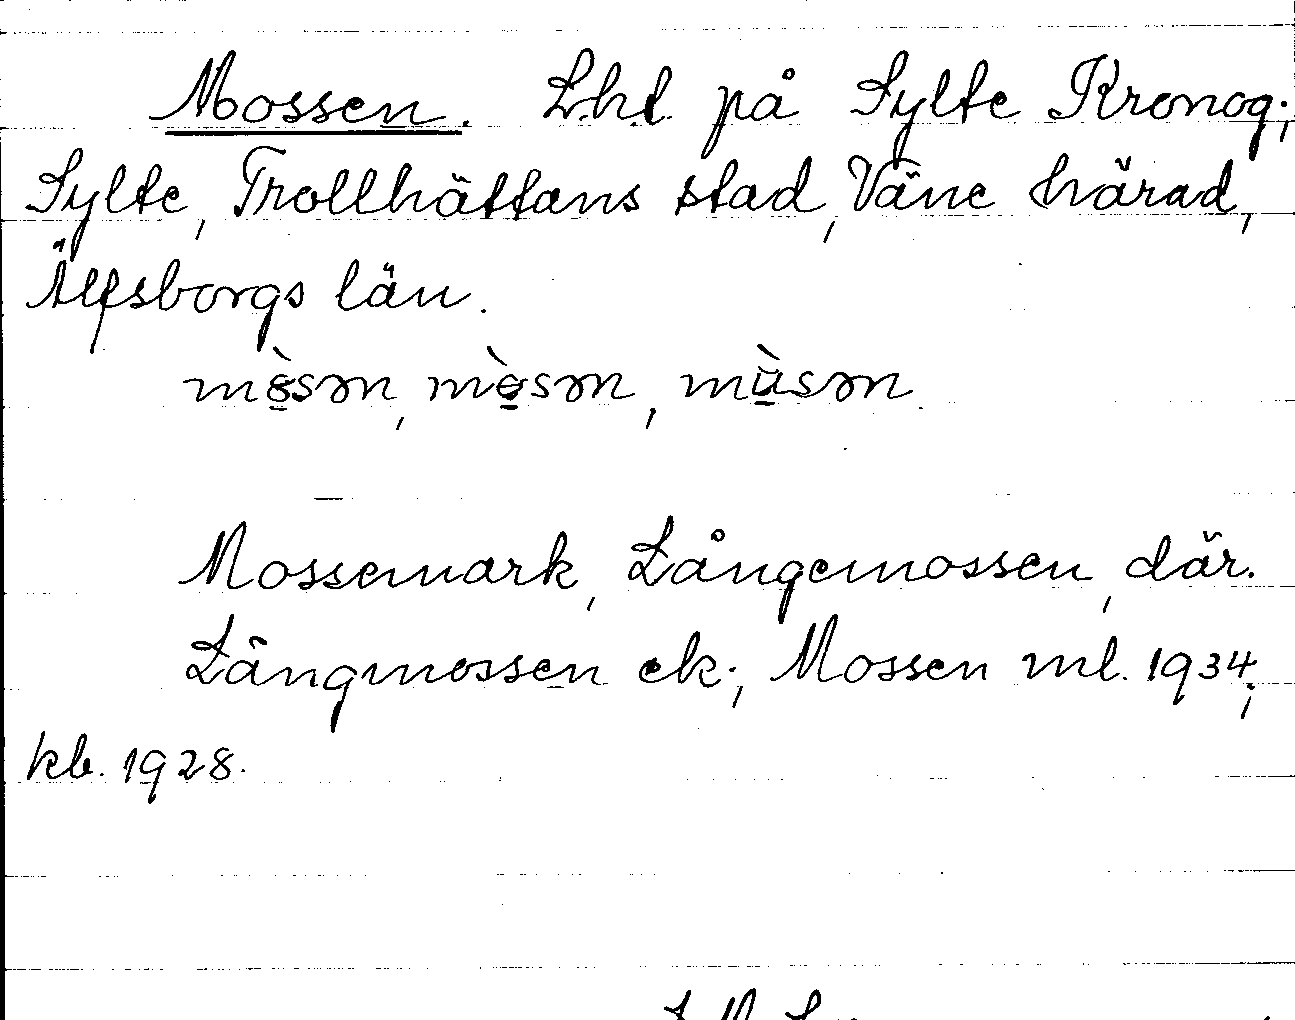 Mossen. Lht på Sylte Kronog.,
Sylte, Trollhättans stad, Väne härad,
Älfsborgs län.
mòsən, mòsən, mùsən.
Mossemark, Långemossen, där.
Långmossen ek., Mossen ml. 1934;
kb. 1928.